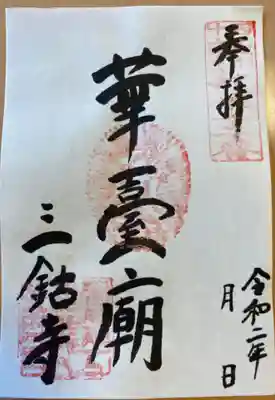 奉拝
令和二年
月　日
華臺廟
三鈷寺